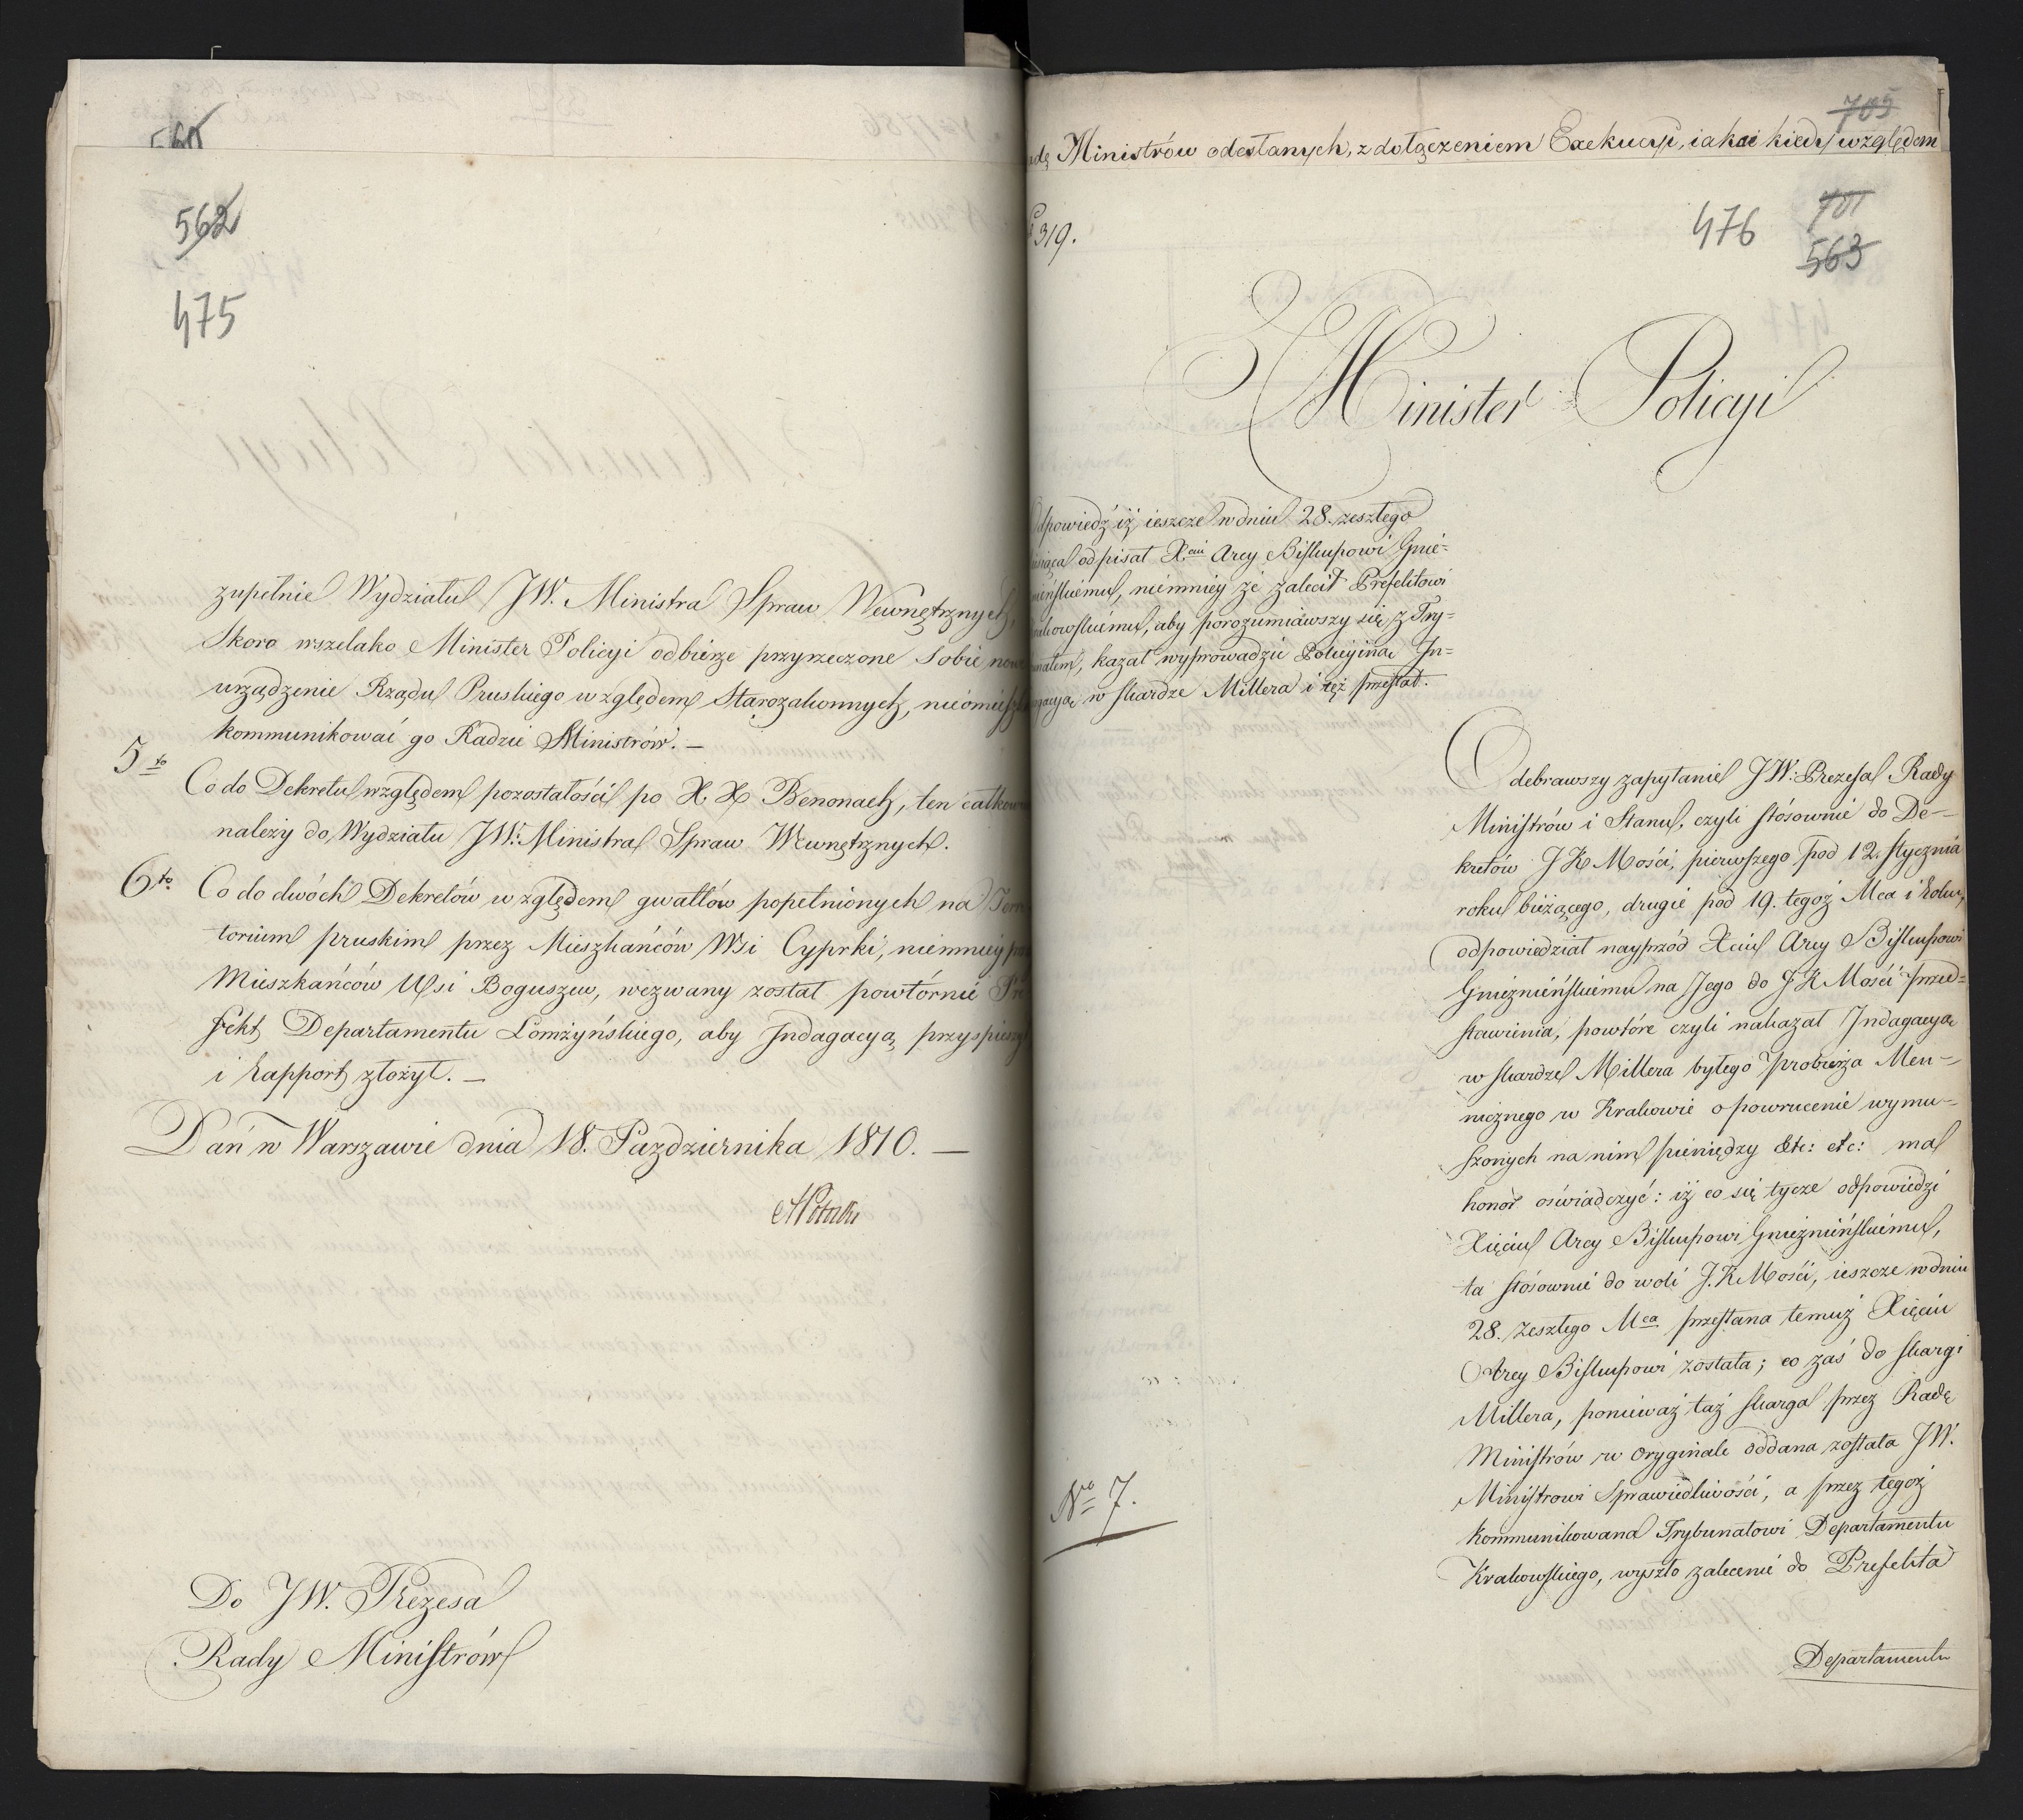 560
562
475
zupełnie Wydziału JW. Ministra Spraw Wewnętrznych,
Skoro wszelako Minister Policyi odbierze przyrzeczone sobie nowe
urządzenie Rządu Pruskiego względem Starozakonnych, nieomieszka
kommunikować go Radzie Ministrów. —
5to
Co do Dekretu względem pozostałości po X X Benonach, ten całkowi
należy do Wydziału JW. Ministra Spraw Wewnętrznych.
6to
Co do dwóch Dekretów względem gwałtów popełnionych na Terri
torium pruskim przez Mieszkańców Wsi Cyprki, niemniey prze
Mieszkańców Wsi Boguszew, wezwany został powtórnie Pre
fekt Departamentu Łomżyńskiego, aby Indagacyą przyspieszył
i Rapport złożył. —
Dan w Warszawie dnia 18. Pazdziernika 1810. —
Do JW. Prezesa
Rady Ministrów
705
adę Ministrów odesłanych, z dołączeniem Exekucyi, iaka i kiedy względem
319.
476
701
563
Minister Policyi
Odpowiedź iż ieszcze w dniu 28. zeszłego
miesiąca odpisał Xciu Arcy Biskupowi Gnie-
znińskiemu, niemniey że zalecił Prefektowi
Krakowskiemu, aby porozumiawszy się z Try-
bunałem, kazał wyprowadzić Policyiną In-
dagacyą w skardze Millera i też przesłał.
Odebrawszy zapytanie JW. Prezesa Rady
Ministrów i Stanu, czyli stósownie do De-
kretów J K Mości, pierwszego pod 12. stycznia
roku bieżącego, drugie pod 19. tegoż Mca i Roku,
odpowiedział nayprzód Xciu Arcy Biskupowi
Gnieznieńskiemu na Jego do J K Mości przed-
stawienia, powtóre czyli nakazał Indagacyą
w skardze Millera byłego Probierza Men-
nicznego w Krakowie o powrucenie wymu-
szonych na nim pieniędzy etc: etc: ma
honor oświadczyć: iż co się tycze odpowiedzi
Xięciu Arcy Biskupowi Gnieznieńskiemu,
ta stósownie do woli J. K Mości, ieszcze w dniu
28. zeszłego Mca przesłana temuż Xięciu
Arcy Biskupowi została; co zaś do skargi
Millera, ponieważ taż skarga przez Radę
Ministrów w oryginale oddana została JW.
Ministrowi Sprawiedliwości, a przez tegoż
kommunikowana Trybunałowi Departamentu
Krakowskiego, wyszło zalecenie do Prefekta
No 7.
Departamentu